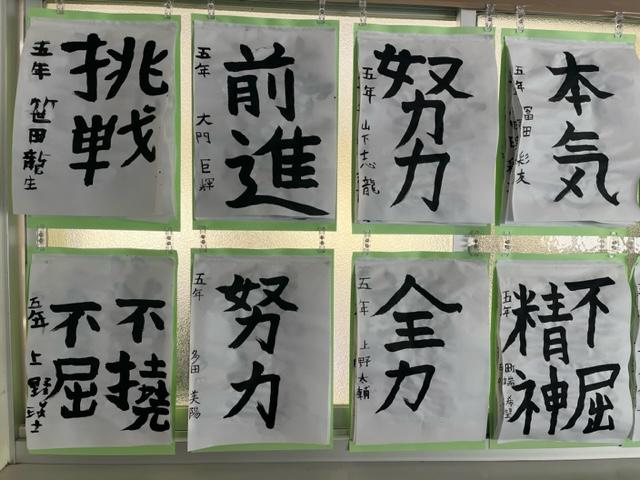 挑戦
五年 笹田龍生
前進
五年 大門 巨輝
努力
五年 山下志龍
本気
五年 冨田 彩友
不撓
不屈
五年 上野 士
努力
五年 多田 美陽
全力
五年 上野太輔
不屈
精神
五年 希望